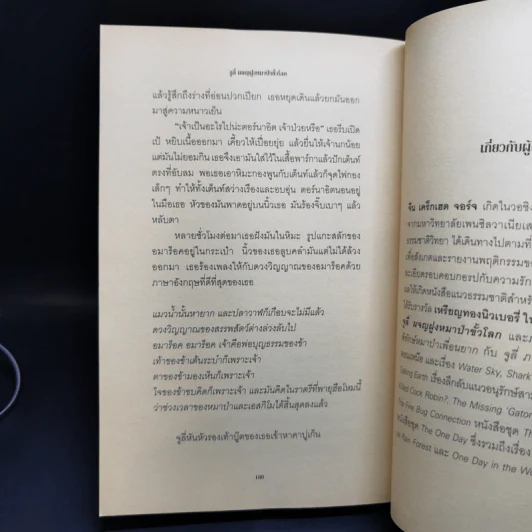 จูลี่ ผจญฝูงหมาป่าขั้วโลก
แล้วรู้สึกถึงร่างที่อ่อนปวกเปียก เธอหยุดเดินแล้วยกมันออก
มาสู่ความหนาวเย็น
“เจ้าเป็นอะไรไปน่ะตอร์นาอิต เจ้าป่วยหรือ” เธอรีบเปิด
เป้ หยิบเนื้อออกมา เคี้ยวให้เปื่อยยุ่ย แล้วยื่นให้เจ้านกน้อย
แต่มันไม่ยอมกิน เธอจึงเอามันใส่ไว้ในเสื้อพาร์กาแล้วปักเต็นท์
ตรงที่อับลม พอเธอเอาหิมะกองพูนกับเต็นท์แล้วก็จุดไฟกอง
เล็กๆ ทำให้ทั้งเต็นท์สว่างเรืองและอบอุ่น ตอร์นาอิตนอนอยู่
ในมือเธอ หัวของมันพาดอยู่บนนิ้วเธอ มันร้องจิ๊บเบาๆ แล้ว
หลับตา
หลายชั่วโมงต่อมาเธอฝังมันในหิมะ รูปแกะสลักของ
อมาร็อคอยู่ในกระเป๋า นิ้วของเธอลูบคลำมันแต่ไม่ได้ล้วง
ออกมา เธอร้องเพลงให้กับดวงวิญญาณของอมาร็อคด้วย
ภาษาอังกฤษที่ดีที่สุดของเธอ
แมวน้ำนั้นหายาก และปลาวาฬก็เกือบจะไม่มีแล้ว
ดวงวิญญาณของสรรพสัตว์ต่างล่วงลับไป
อมาร็อค อมาร็อค เจ้าคือพ่อบุญธรรมของข้า
เท้าของข้าเต้นระบำก็เพราะเจ้า
ตาของข้ามองเห็นก็เพราะเจ้า
ใจของข้าขบคิดก็เพราะเจ้า และมันคิดในราตรีที่พายุฮือโหมนี้
ว่าช่วงเวลาของหมาป่าและเอสกิโมได้สิ้นสุดลงแล้ว
จูลี่หันหัวรองเท้าบู๊ตของเธอเข้าหาคาปูเกิน
180
เกี่ยวกับผู้
จีน เคร็กเฮด จอร์จ เกิดในวอชิง
จากมหาวิทยาลัยเพนซิลวาเนียเส
ธรรมชาติวิทยา ได้เดินทางไปตามที่
เพื่อสังเกตและรายงานพฤติกรรมขอ
ละเอียดรอบคอบกอรปกับความรัก
ผลให้เกิดหนังสือแนวธรรมชาติสำหรั
ได้รับรางวัล เหรียญทองนิวเบอรี่ ใน
จูลี่ ผจญฝูงหมาป่าขั้วโลก และ
พิทักษ์หมาป่าเพื่อนยาก กับ จูลี่
และเรื่อง Water Sky, Shark
Talking Earth เรื่องลึกลับแนวอนุรักษ์สา
Killed Cock Robin?, The Missing 'Gator
The Fire Bug Connection หนังสือชุด Th
หนังสือชุด The One Day ซึ่งรวมถึงเรื่อง
Rain Forest และ One Day in the Wo